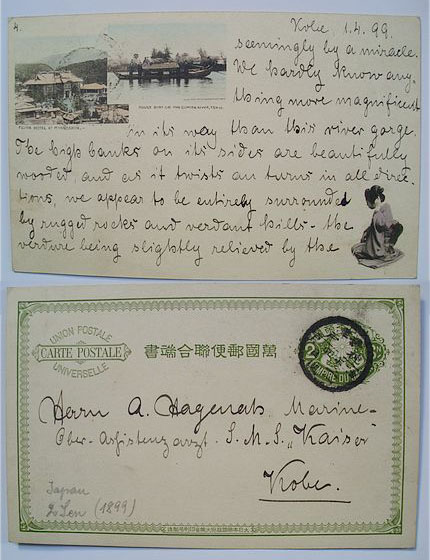 4.
Kobe, 1.4.99.
seemingly by a miracle.
We hardly know any-
thing more magnificent
FUJIYA HOTEL AT MIYANOSHITA.
HOUSE BOAT ON THE SUMIDA RIVER, TOKIO.
in its way than this river gorge.
The high banks on its sides are beautifully
wooded, and as it twists an turns in all direc-
tions, we appear to be entirely surrounded
by rugged rocks and verdant hills - the
verdure being slightly relieved by the
UNION POSTALE
CARTE POSTALE
UNIVERSELLE
書端合聯便郵國萬
2
EMPIRE DU
Herrn A. Hagenah, Marine-
Ober-Assistenzarzt. S.M.S. „Kaiser"
Kobe.
Japan
2 Sen (1899)